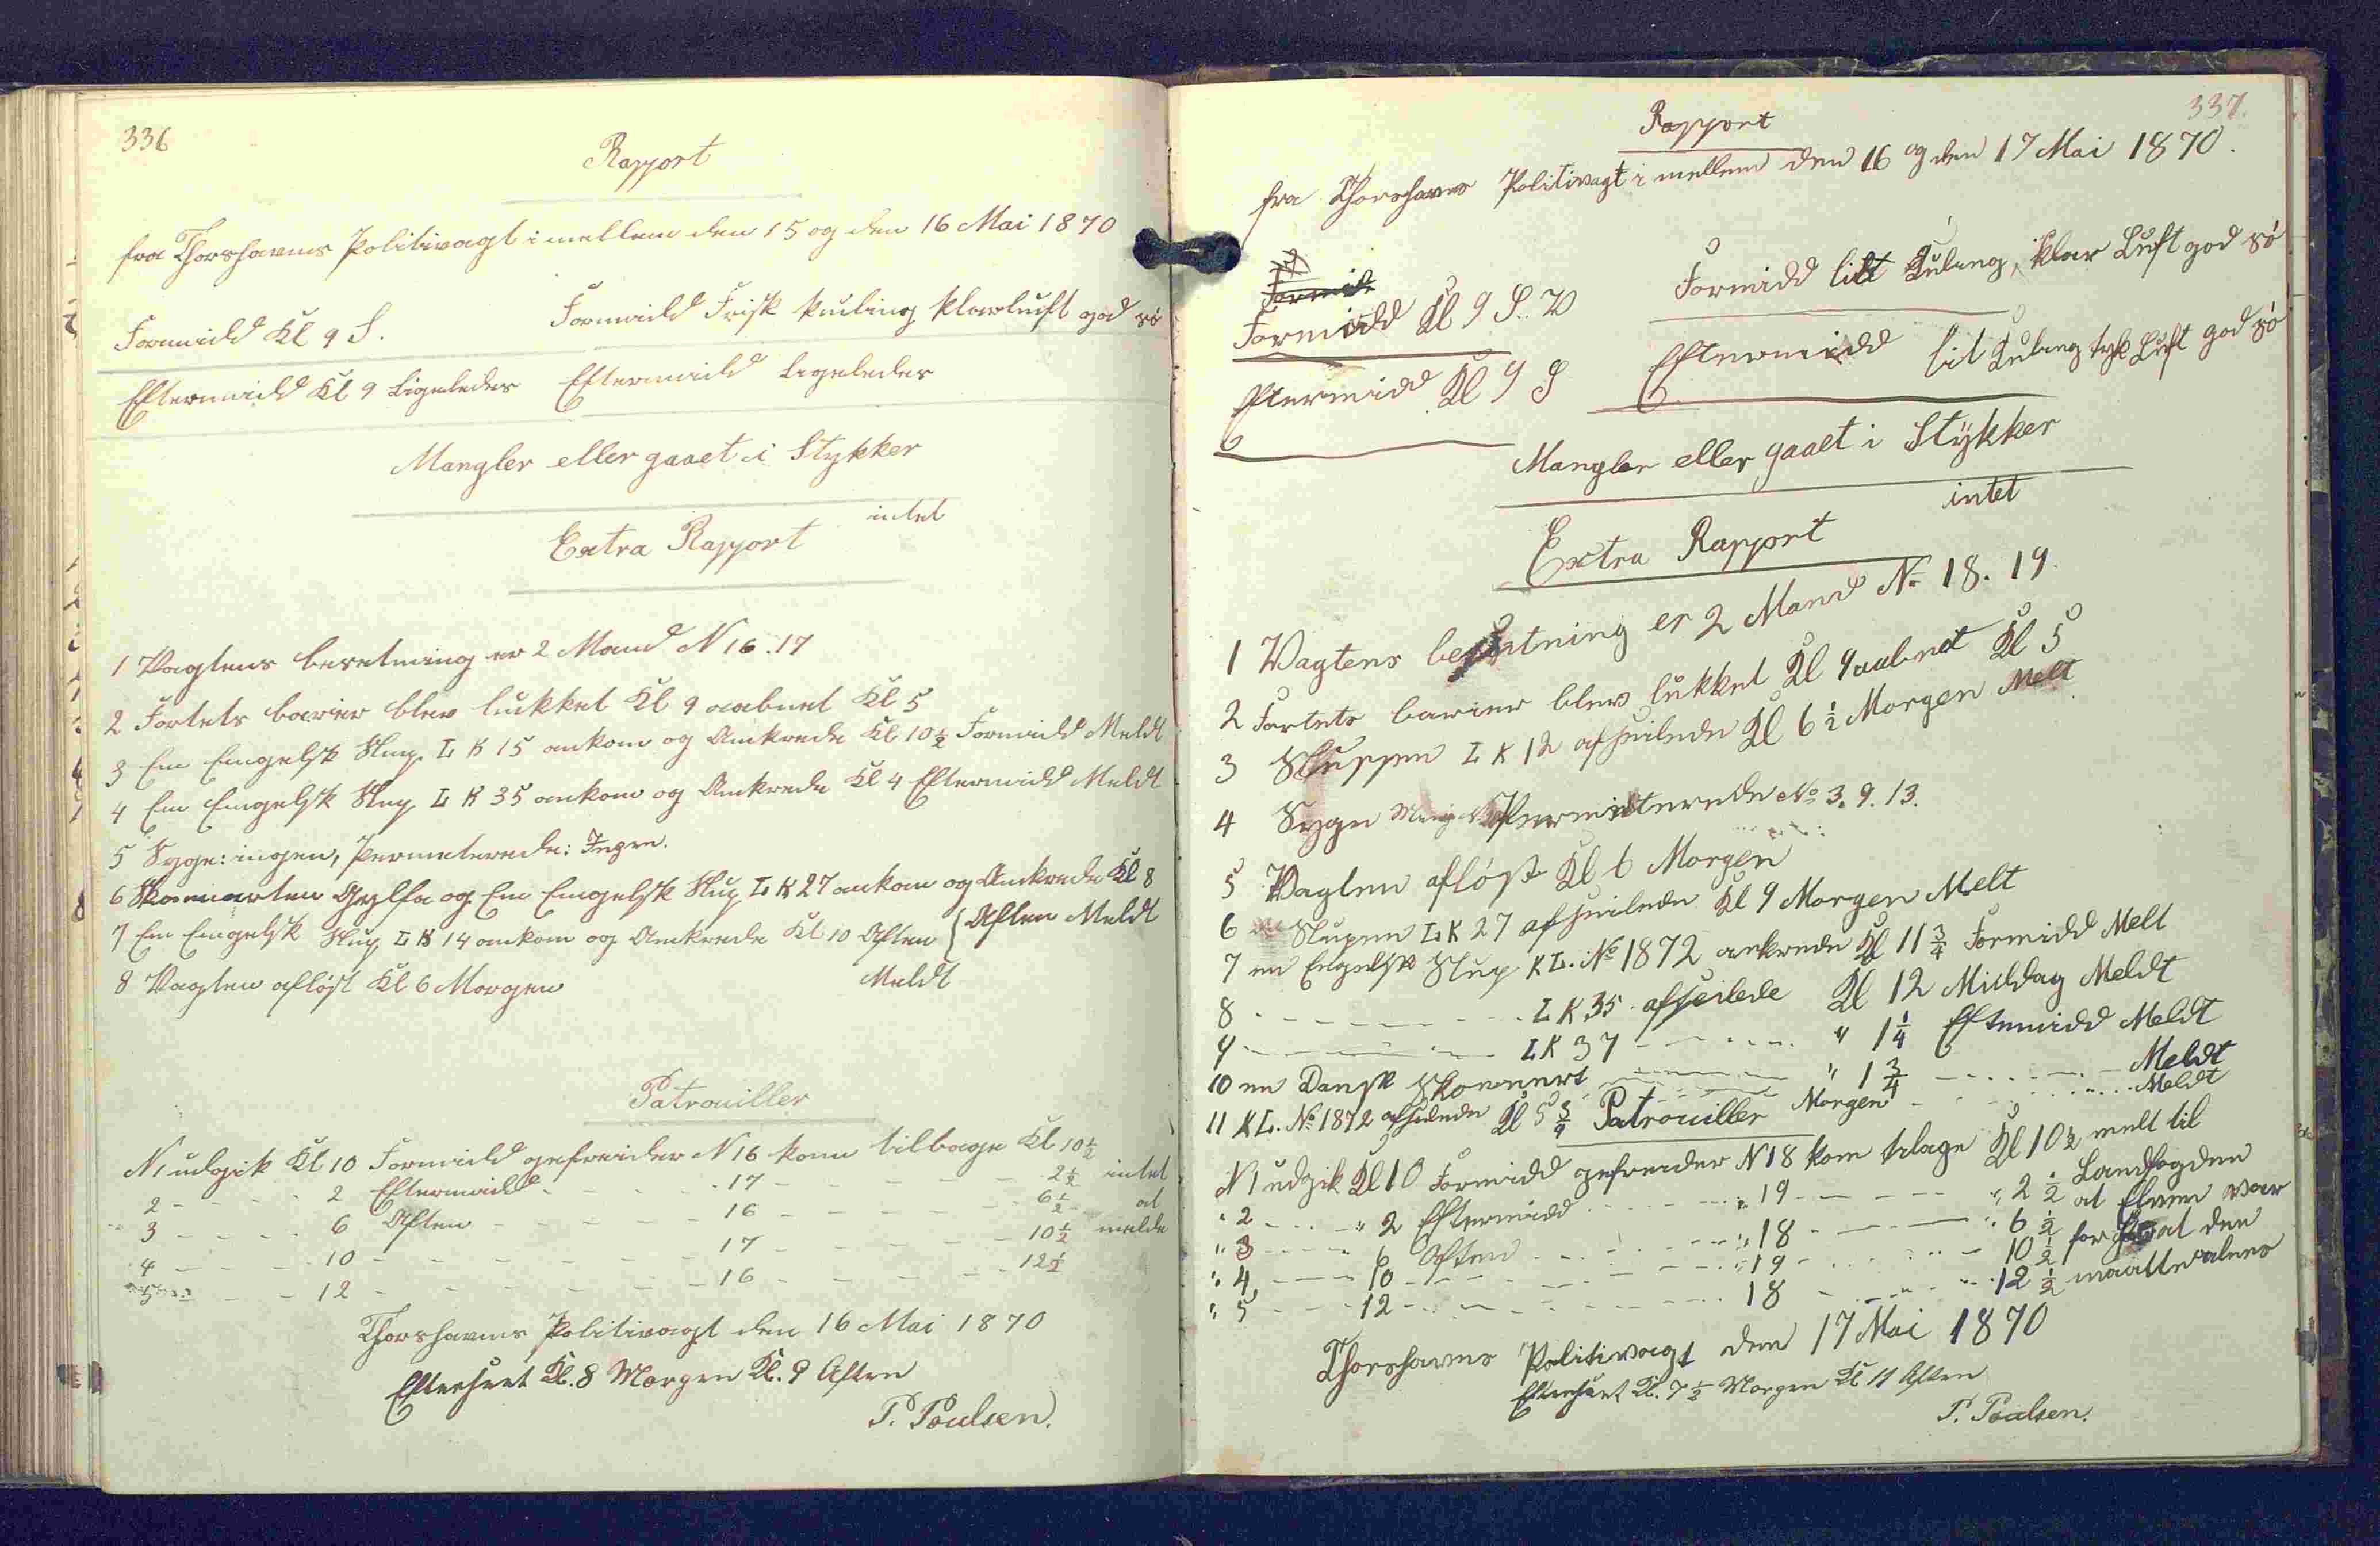 336
Rapport
fra Thorshavns Politivagt imellem den 15 og den 16 Mai 1870
Formidd Kl 9 S. Formidd Frisk kuling klarluft god sö
Eftermidd Kl 9 Ligeledes Eftermidd Ligeledes
Mangler eller gaaet i Stykker
intet
Extra Rapport
1 Vagtens besetning er 2 Mand N 16.17
2 Fortets barier blev lukket Kl 9 aabnet Kl 5
3 En Engelsk Slup L K 15 ankom og Ankrede Kl 10½ Formidd Meldt
4 En Engelsk Slup L K 35 ankom og Ankrede Kl 4 Eftermidd Meldt
5 Syge: ingen, Permeterede: Ingen.
6 Skonnerten og En Engelsk Slup L K 27 ankom og Ankrede Kl 8
7 En Engelsk Slup L K 14 ankom og Ankrede Kl 10 Aften { Aften Meldt
8 Vagten aflöst Kl 6 Morgen Meldt
Patrouiller
N 1 udgik Kl 10 Formidd gefreider N 16 kom tilbage Kl 10½
2 - - - - 2 Eftermidd - - - - 17 - - - - - 2½ intet
3 - - - - 6 Aften - - - - - 16 - - - - - 6½ at
4 - - - - 10 - - - - - 17 - - - - - 10½ melde
5 - - - - 12 - - - - - 16 - - - - - 12½
Thorshavns Politivagt den 16 Mai 1870
Efterseet Kl. 8 Morgen Kl. 9 Aften
P. Poulsen.
337.
Rapport
fra Thorshavns Politivagt i mellem den 16 og den 17 Mai 1870.
Formidd
Formidd Kl 9 S.. V Formidd lidt Kuling, klar Luft god sö
Eftermidd Kl 9 S Eftermidd lit Kuling tyk Luft god sö
Mangler eller gaaet i Stykker
intet
Extra Rapport
1 Vagtens besætning er 2 Mand No 18. 19
2 Fortets barier blev lukket Kl 9 aabnet Kl 5
3 Sluppen L K 12 afseilede Kl 6½ Morgen Melt
4 Syge Permitterede No 3. 9. 13.
5 Vagten aflöst Kl 6 Morgen
6 Slupen L K 27 afseilede Kl 9 Morgen Melt
7 en Engelsk Slup K L. No 1872 ankrede Kl 11¾ Formidd Melt
8 - - - - - - L K 35 afseilede Kl 12 Middag Meldt
9 - - - - - - L K 37 - - - - " 1¼ Eftemidd Meldt
10 en Dansk Skonnert - - - - " 1¾ - - - - Meldt
11 K L. No 1872 afseilede Kl 5¾ Morgen - - - - Meldt
Patrouiller
N 1 udgik Kl 10 Formidd gefreider N 18 kom tilage Kl 10½ melt til
" 2 - - - " 2 Eftermidd - - - - " 19 - - - - " 2½ Landfogden
" 3 - - - - 6 Aften - - - - " 18 - - - - " 6½ at Elven var
" 4 - - - - 10 - - - - - " 19 - - - - 10½ for at den
" 5 - - - - 12 - - - - - 18 - - - - 12½ maatte
Thorshavns Politivagt den 17 Mai 1870
Efterseet Kl. 7½ Morgen Kl 11 Aften
P. Poulsen.